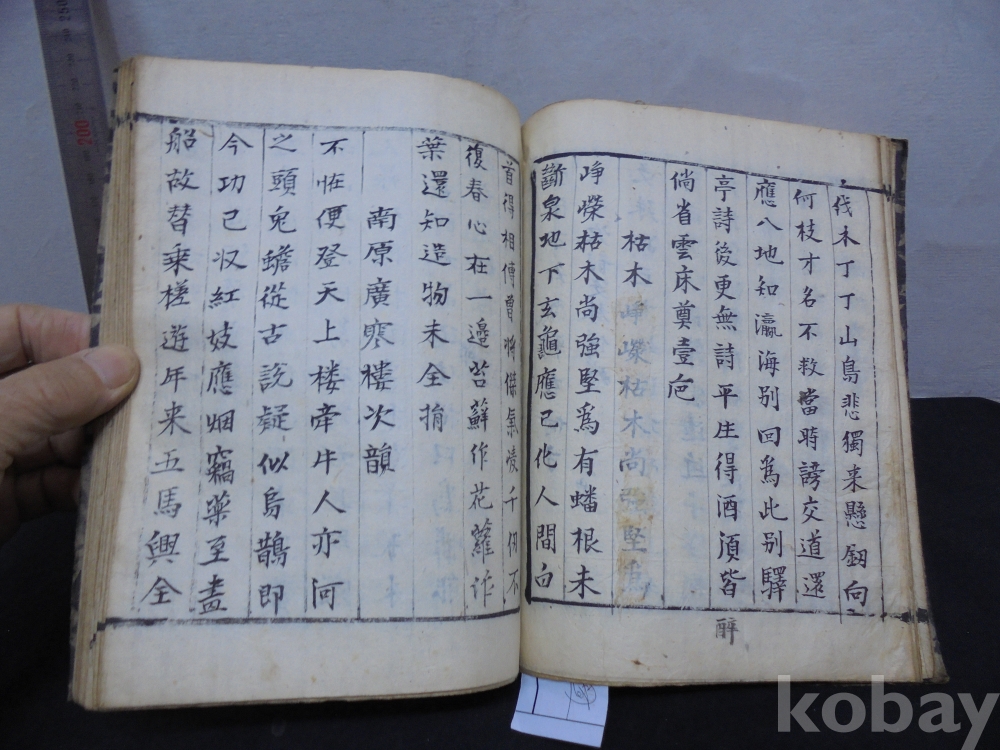 伐木丁丁山鳥悲獨来懸釼向
何枝才名不救當時謗交道還
應八地知瀛海別回爲此别驛
亭詩後更無詩平生得酒湏皆
醉
倘省雲床奠壹巵
枯木
崢嶸枯木尚強堅爲有蟠根未
斷泉地下玄龜應已化人間白
首得相傳曾將傑氣凌千仞不
復春心在一邊苔蘚作花蘿作
葉還知造物未全捐
南原廣寒樓次韻
不恠便登天上楼牽牛人亦何
之頭兎蟾從古説疑似烏鵲即
今功已収紅妓應烟竊藥至盡
船故替乗槎遊年来五馬興全
kobay
200
250